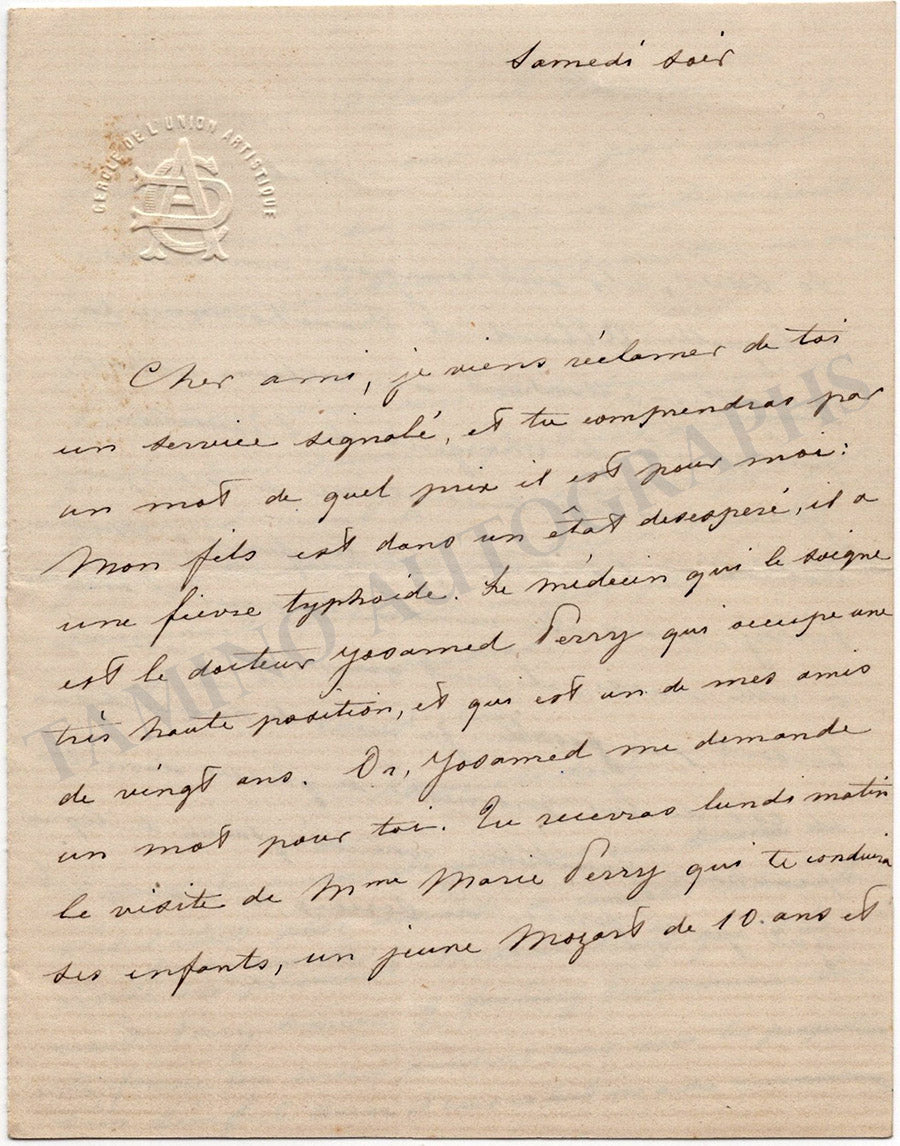 Samedi soir
CERCLE DE L'UNION ARTISTIQUE
Cher ami, je viens réclamer de toi
un service signalé, et tu comprendras par
un mot de quel prix il est pour moi :
Mon fils est dans un état desesperé, il a
une fievre typhoide. Le médecin qui le soigne
est le docteur Gosamed Perry qui occupe une
très haute position, et qui est un de mes amis
de vingt ans. Or, Gosamed me demande
un mot pour toi. Tu recevras lundi matin
la visite de Mme Marie Perry qui te conduira
ses enfants, un jeune Mozart de 10 ans et
TAMINO AUTOGRAPHS